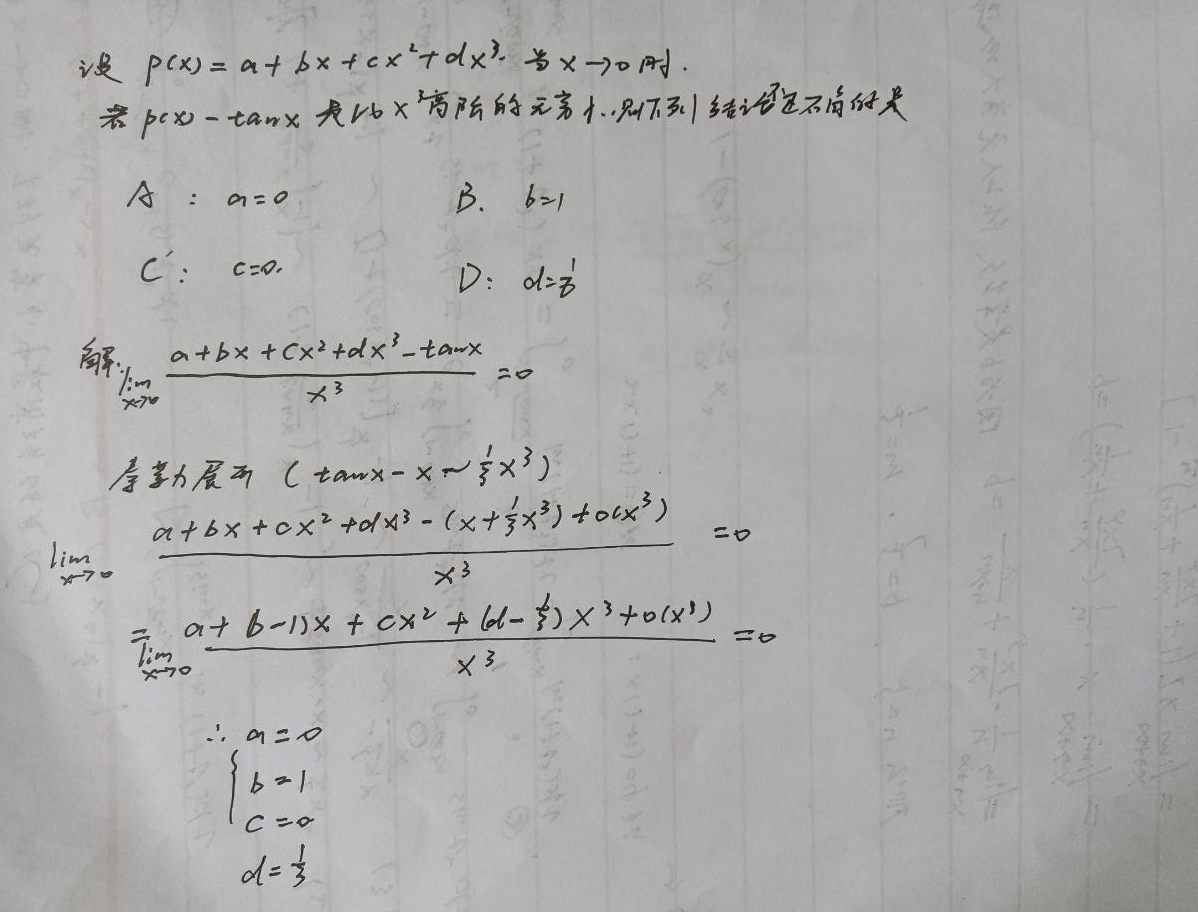 设 p(x) = a + bx + cx² + dx³. 当 x→0 时.
若 p(x) - tanx 是比 x³高阶的无穷小.则下列结论
A : a=0 B. b=1
C : c=0. D: d=1/6
解: lim x→0 (a+bx+cx²+dx³-tanx)/x³ = 0
泰勒展开 ( tanx - x ~ 1/3 x³ )
lim x→0 (a+bx+cx²+dx³-(x+1/3x³)+o(x³))/x³ = 0
= lim x→0 (a+(b-1)x+cx²+(d-1/3)x³+o(x³))/x³ = 0
∴ a=0
b=1
c=0
d=1/3